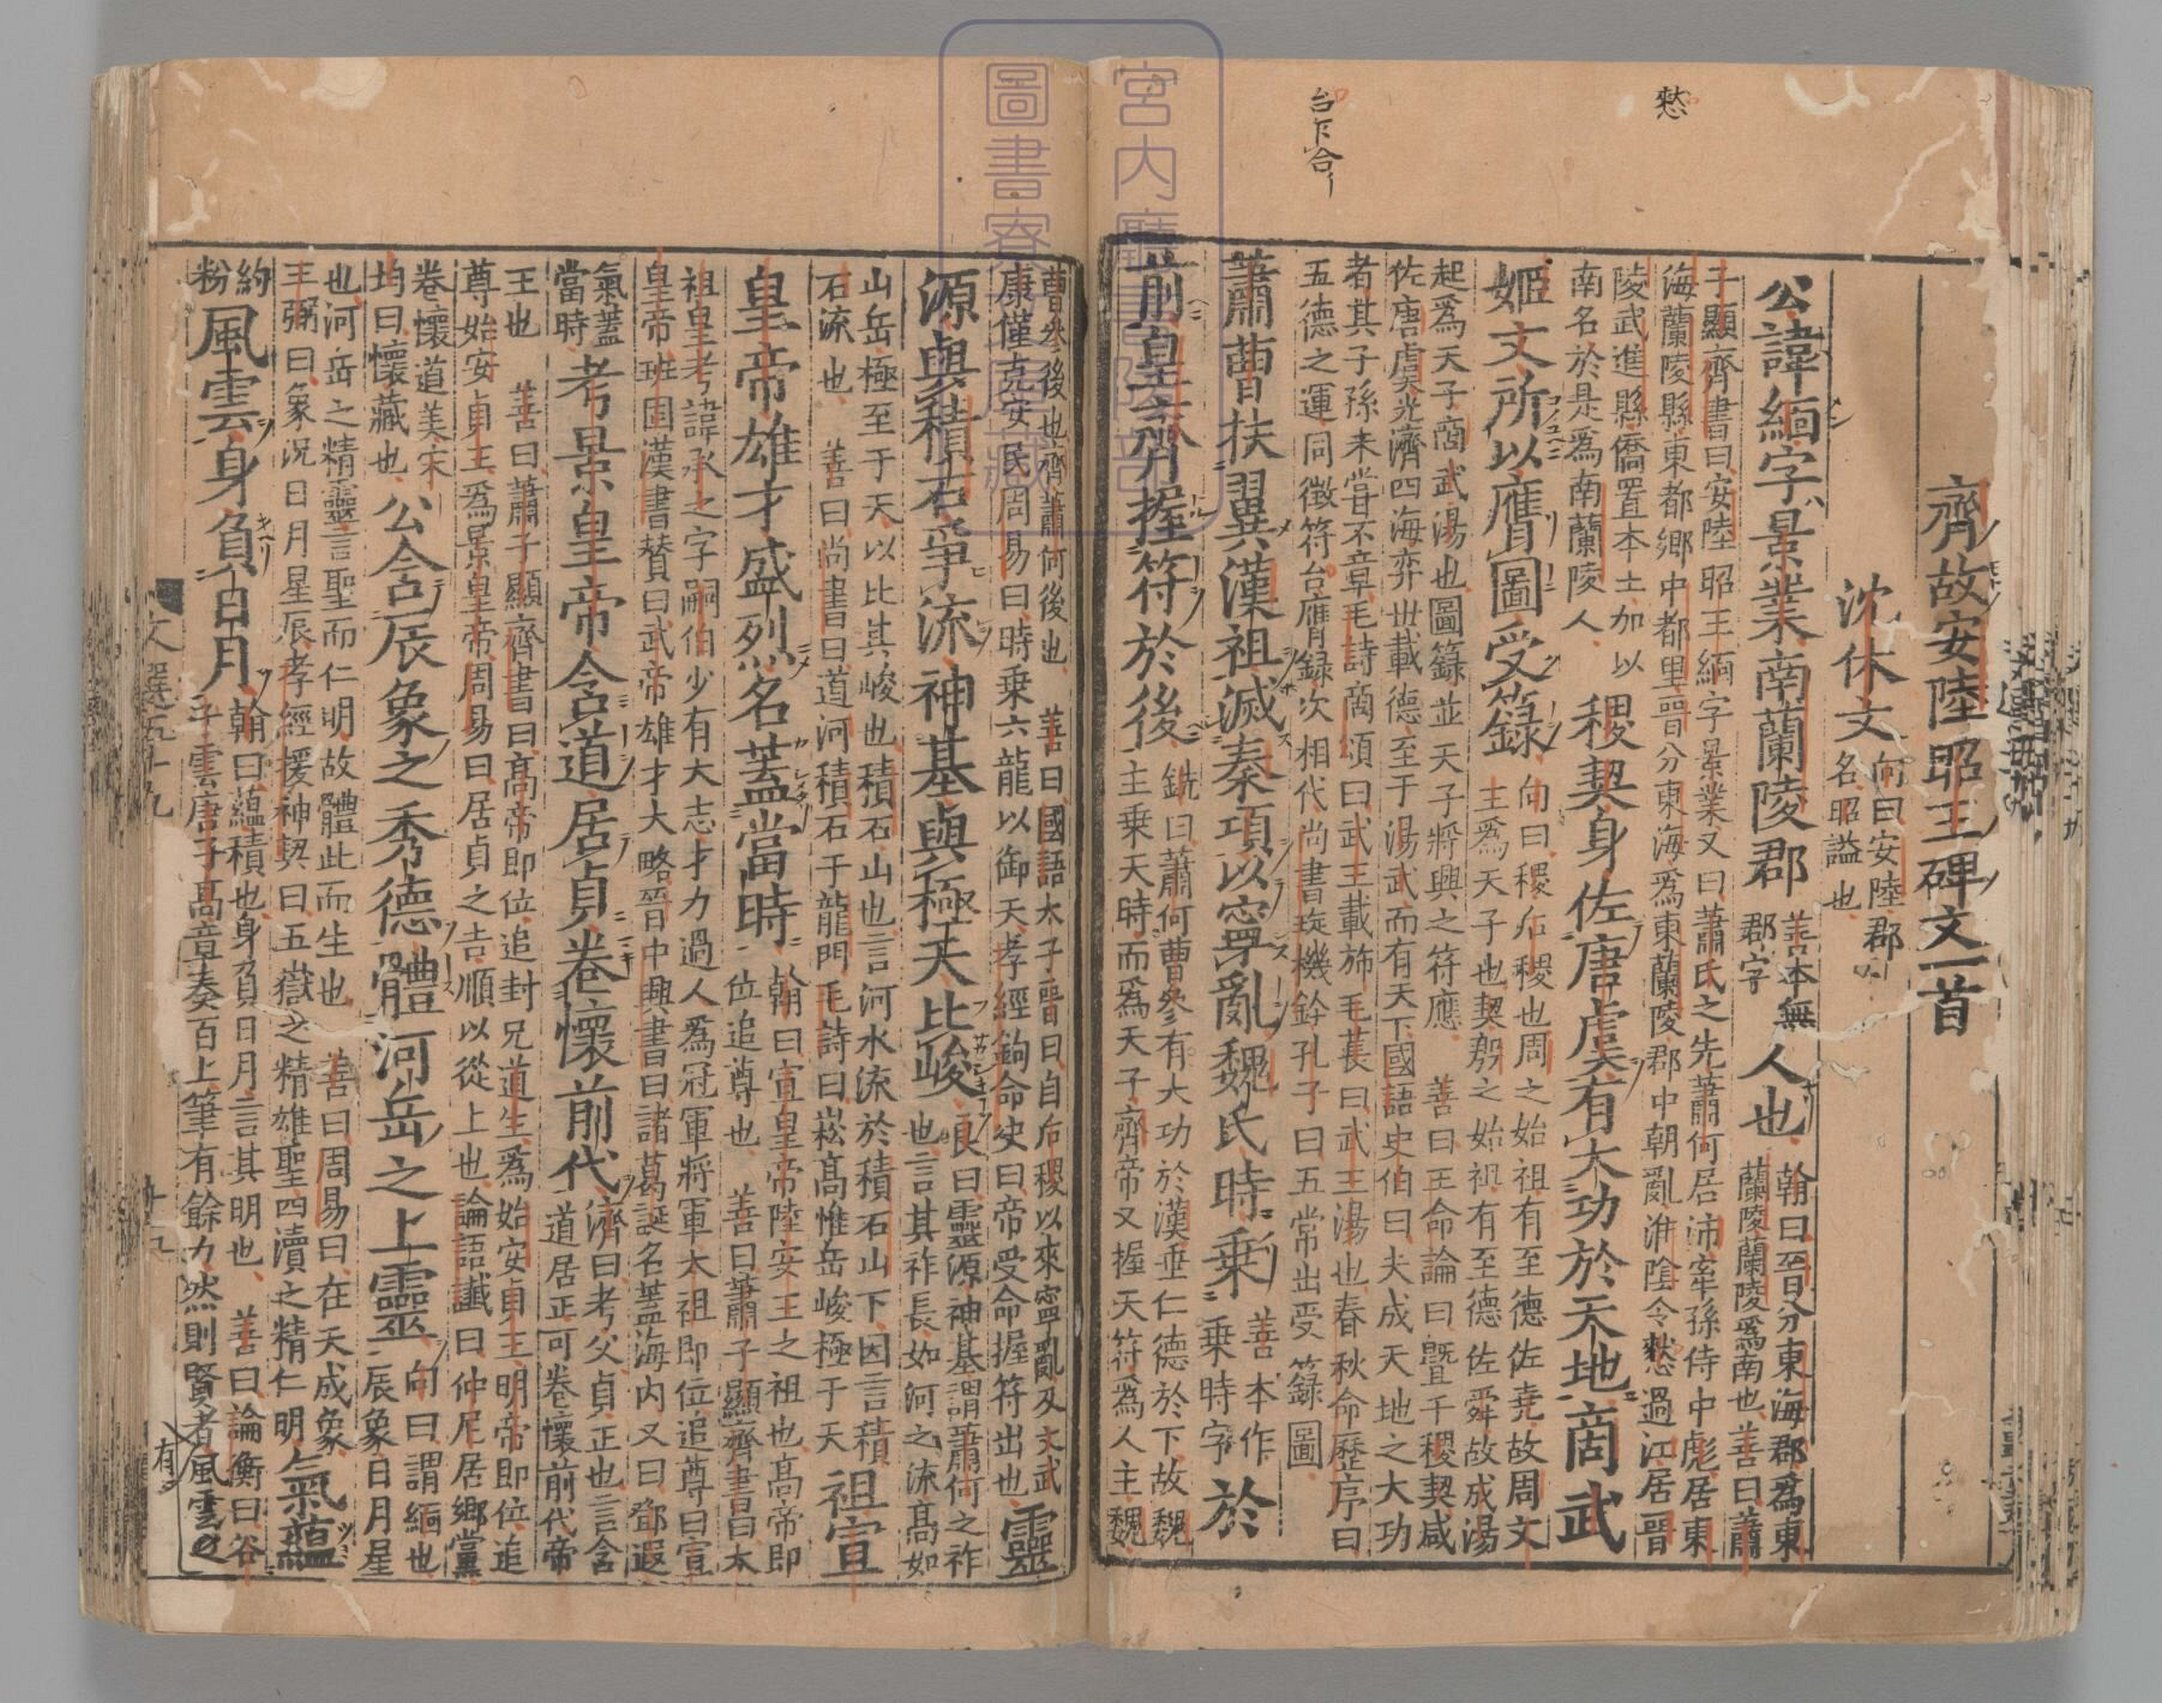 齊故安陸昭王碑文一首
沈休文 向曰安陸郡名昭謚也
公諱緬字景業南蘭陵郡 善本無郡字 人也 翰曰晉分東海郡爲東蘭陵蘭陵爲南也善曰蕭
子顯齊書曰安陸昭王緬字景業又曰蕭氏之先蕭何居沛宰孫侍中彪居東
海蘭陵縣東都鄉中都里晉分東海爲東蘭陵郡中朝亂淮陰令愸過江居晉
陵武進縣僑置本土加以南名於是爲南蘭陵人 稷契身佐唐虞有大功於天地商武
姬文所以膺圖受籙 向曰稷后稷也周之始祖有至德佐堯故周文主爲天子也契殷之始祖有至德佐舜故成湯
起爲天子商武湯也圖籙並天子將興之符應 善曰王命論曰暨于稷契咸
佐唐虞光濟四海弈世載德至于湯武而有天下國語史伯曰夫成天地之大功
者其子孫未嘗不章毛詩商頌曰武王載斾毛萇曰武王湯也春秋命歷序曰
五德之運同徵符台膺録次相代尚書琁機鈐孔子曰五常出受籙圖
蕭曹扶翼漢祖滅秦項以寧亂魏氏時乗 善本作乗時字 於
前皇齊握符於後 銑曰蕭何曹參有大功於漢垂仁德於下故魏主乗天時而爲天子齊帝又握天符爲人主魏
曹參後也齊蕭何後也 善曰國語太子晉曰自后稷以來寧亂及文武
康僅克安民周易曰時乗六龍以御天孝經鉤命決曰帝受命握符出也 靈
源與積石爭流神基與極天比峻 良曰靈源神基謂蕭何之祚也言其祚長如河之流高如
山岳極至于天以比其峻也積石山也言河水流於積石山下因言積
石流也 善曰尚書曰道河積石于龍門毛詩曰崧高惟岳峻極于天 祖宣
皇帝雄才盛烈名蓋當時 翰曰宣皇帝陸安王之祖也高帝即位追尊也 善曰蕭子顯齊書曰太
祖皇考諱承之字嗣伯少有大志才力過人爲冠軍將軍太祖即位追尊曰宣
皇帝班固漢書贊曰武帝雄才大略晉中興書曰諸葛誕名蓋海内又曰鄧遐
氣蓋當時 考景皇帝含道居貞卷懷前代 濟曰考父貞正也言含道居正可卷懷前代帝
王也 善曰蕭子顯齊書曰高帝即位追封兄道生爲始安貞王明帝即位追
尊始安貞王爲景皇帝周易曰居貞之吉順以從上也論語讖曰仲尼居鄉黨
卷懷道美宋均曰懷藏也 公含辰象之秀德體河岳之上靈 向曰謂緬也辰象日月星
也河岳之精靈言聖而仁明故體此而生也 善曰周易曰在天成象
王弼曰象況日月星辰孝經援神契曰五嶽之精雄聖四瀆之精仁明 氣蘊
風雲身負日月 翰曰蘊積也身負日月言其明也 善曰論衡曰谷子雲唐子高章奏百上筆有餘力然則賢者風雲之
約粉
愸
台下合
有
文選五十九
十九
宮内廳書陵部
圖書寮文庫藏